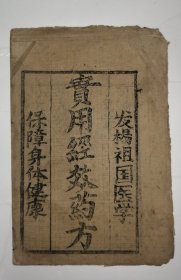 发揚祖国医学
實用經效药方
保障身体健康